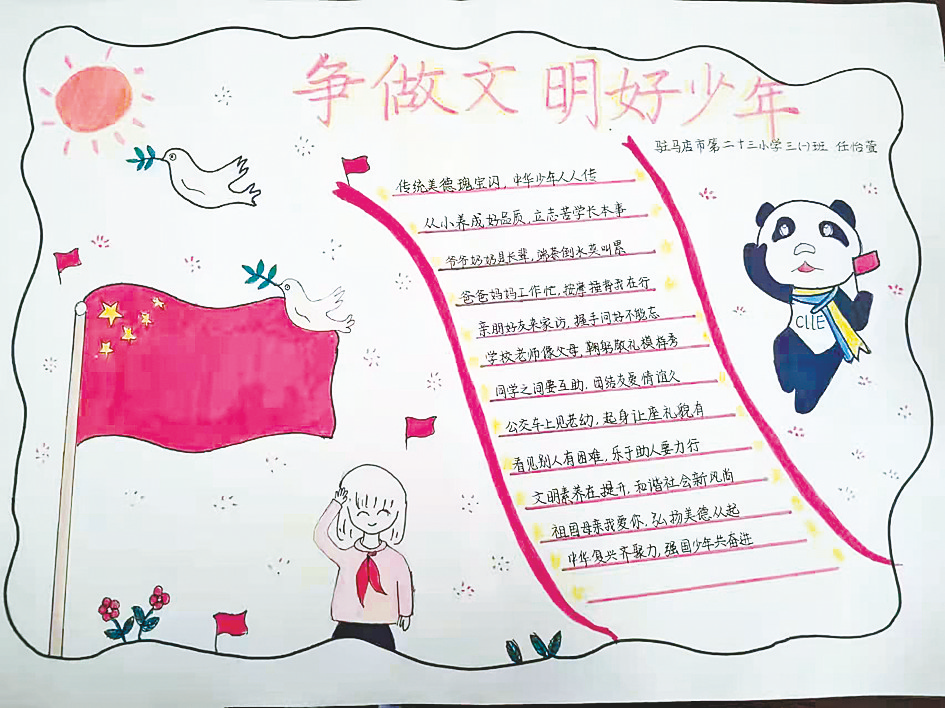 争做文明好少年
驻马店市第二十三小学三(一)班 任怡萱
传统美德瑰宝闪，中华少年人人传
从小养成好品质，立志苦学长本事
爷爷奶奶是长辈，端茶倒水莫叫累
爸爸妈妈工作忙，按摩捶背我在行
亲朋好友来家访，握手问好不能忘
学校老师像父母，鞠躬敬礼模样秀
同学之间要互助，团结友爱情谊久
公交车上见老幼，起身让座礼貌有
看见别人有困难，乐于助人要力行
文明素养在提升，和谐社会新风尚
祖国母亲我爱你，弘扬美德从起
中华复兴齐聚力，强国少年共奋进
CIIE